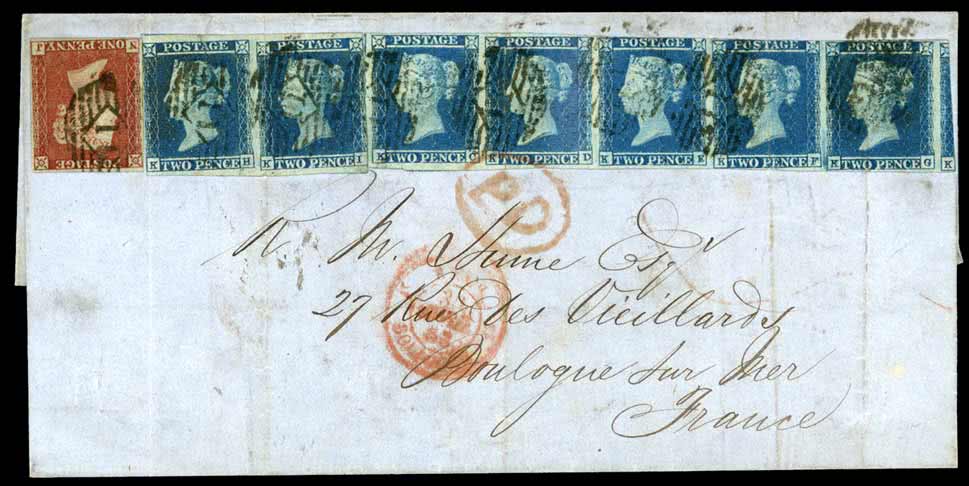 ONE PENNY
POSTAGE POSTAGE POSTAGE POSTAGE POSTAGE POSTAGE POSTAGE
K TWO PENCE H K TWO PENCE I K TWO PENCE C K TWO PENCE D K TWO PENCE E K TWO PENCE F K TWO PENCE G K
PD
R. M. Hume Esqr
27 Rue des Vieillards
Boulogne sur Mer
France